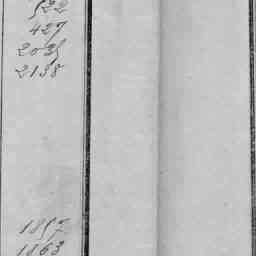 522
427
2035
2138
1857
1863